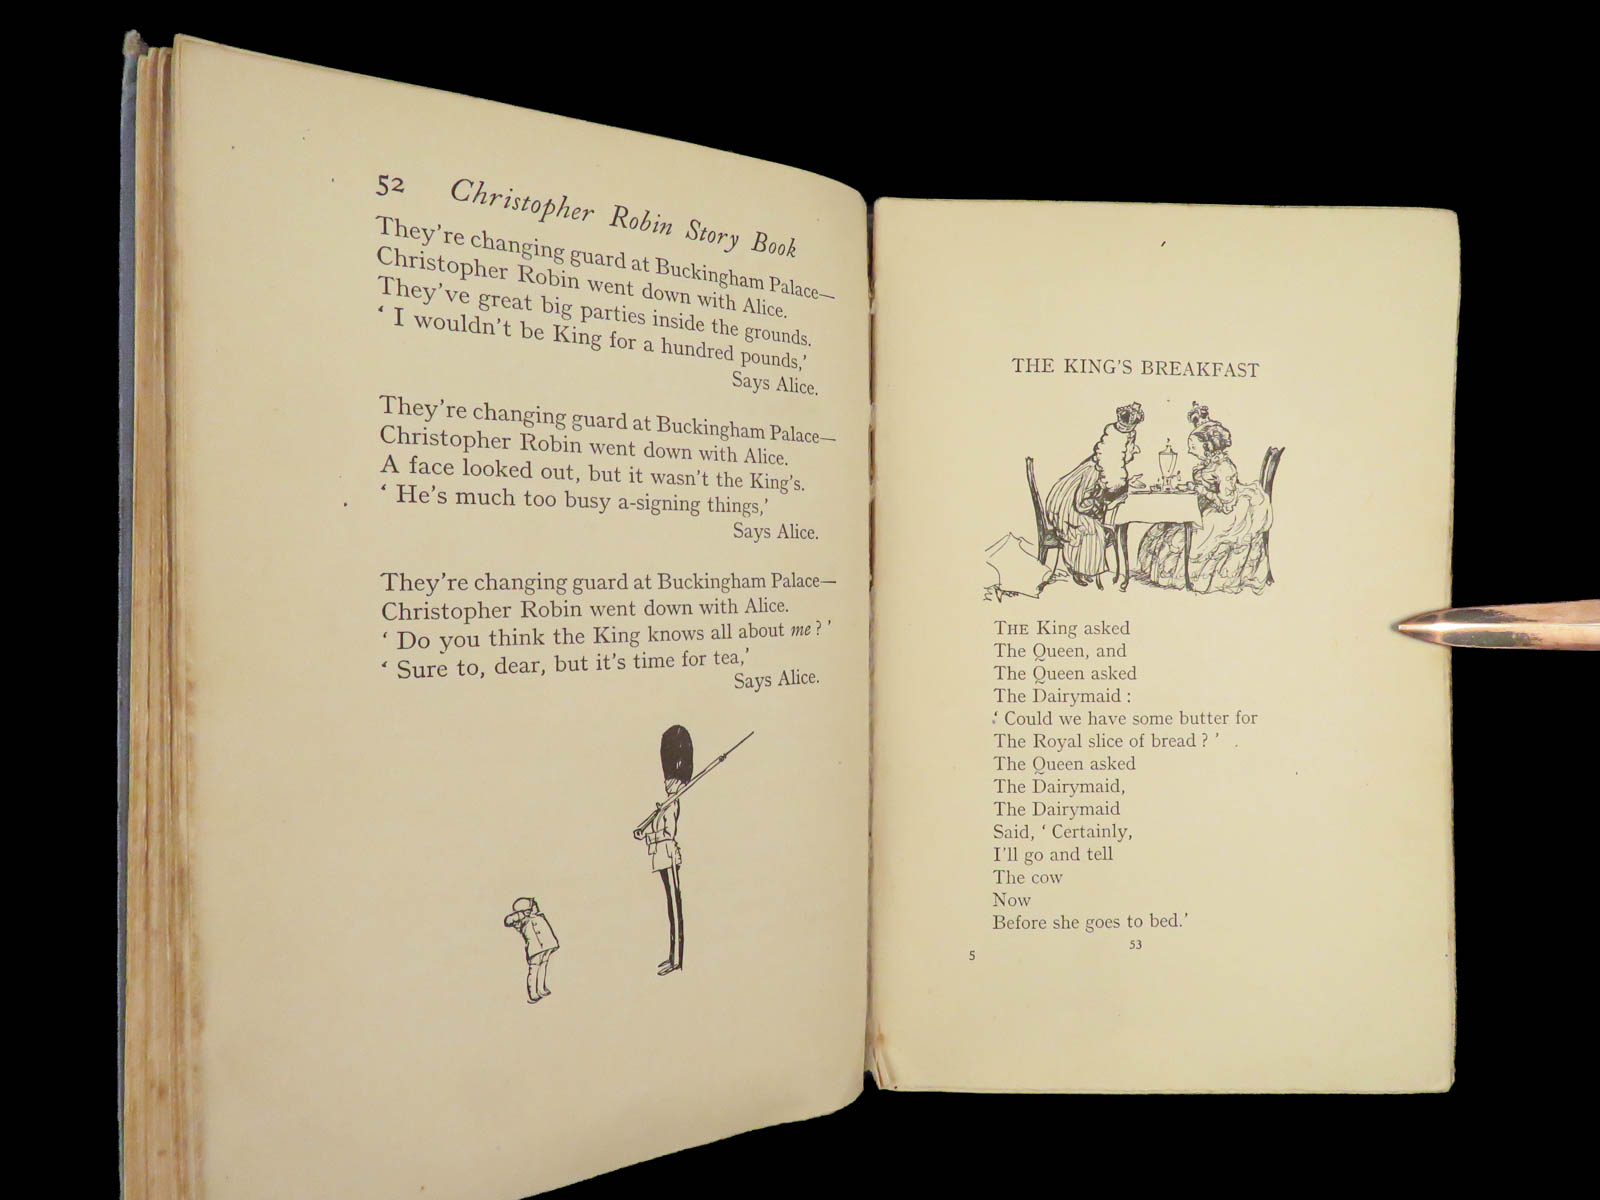 52 Christopher Robin Story Book
They're changing guard at Buckingham Palace—
Christopher Robin went down with Alice.
They've great big parties inside the grounds.
‘ I wouldn't be King for a hundred pounds,’
Says Alice.
They're changing guard at Buckingham Palace—
Christopher Robin went down with Alice.
A face looked out, but it wasn't the King's.
‘ He's much too busy a-signing things,’
Says Alice.
They're changing guard at Buckingham Palace—
Christopher Robin went down with Alice.
‘ Do you think the King knows all about me ? ’
‘ Sure to, dear, but it's time for tea,’
Says Alice.
THE KING'S BREAKFAST
THE King asked
The Queen, and
The Queen asked
The Dairymaid :
‘ Could we have some butter for
The Royal slice of bread ? ’
The Queen asked
The Dairymaid,
The Dairymaid
Said, ‘ Certainly,
I'll go and tell
The cow
Now
Before she goes to bed.’
53
5